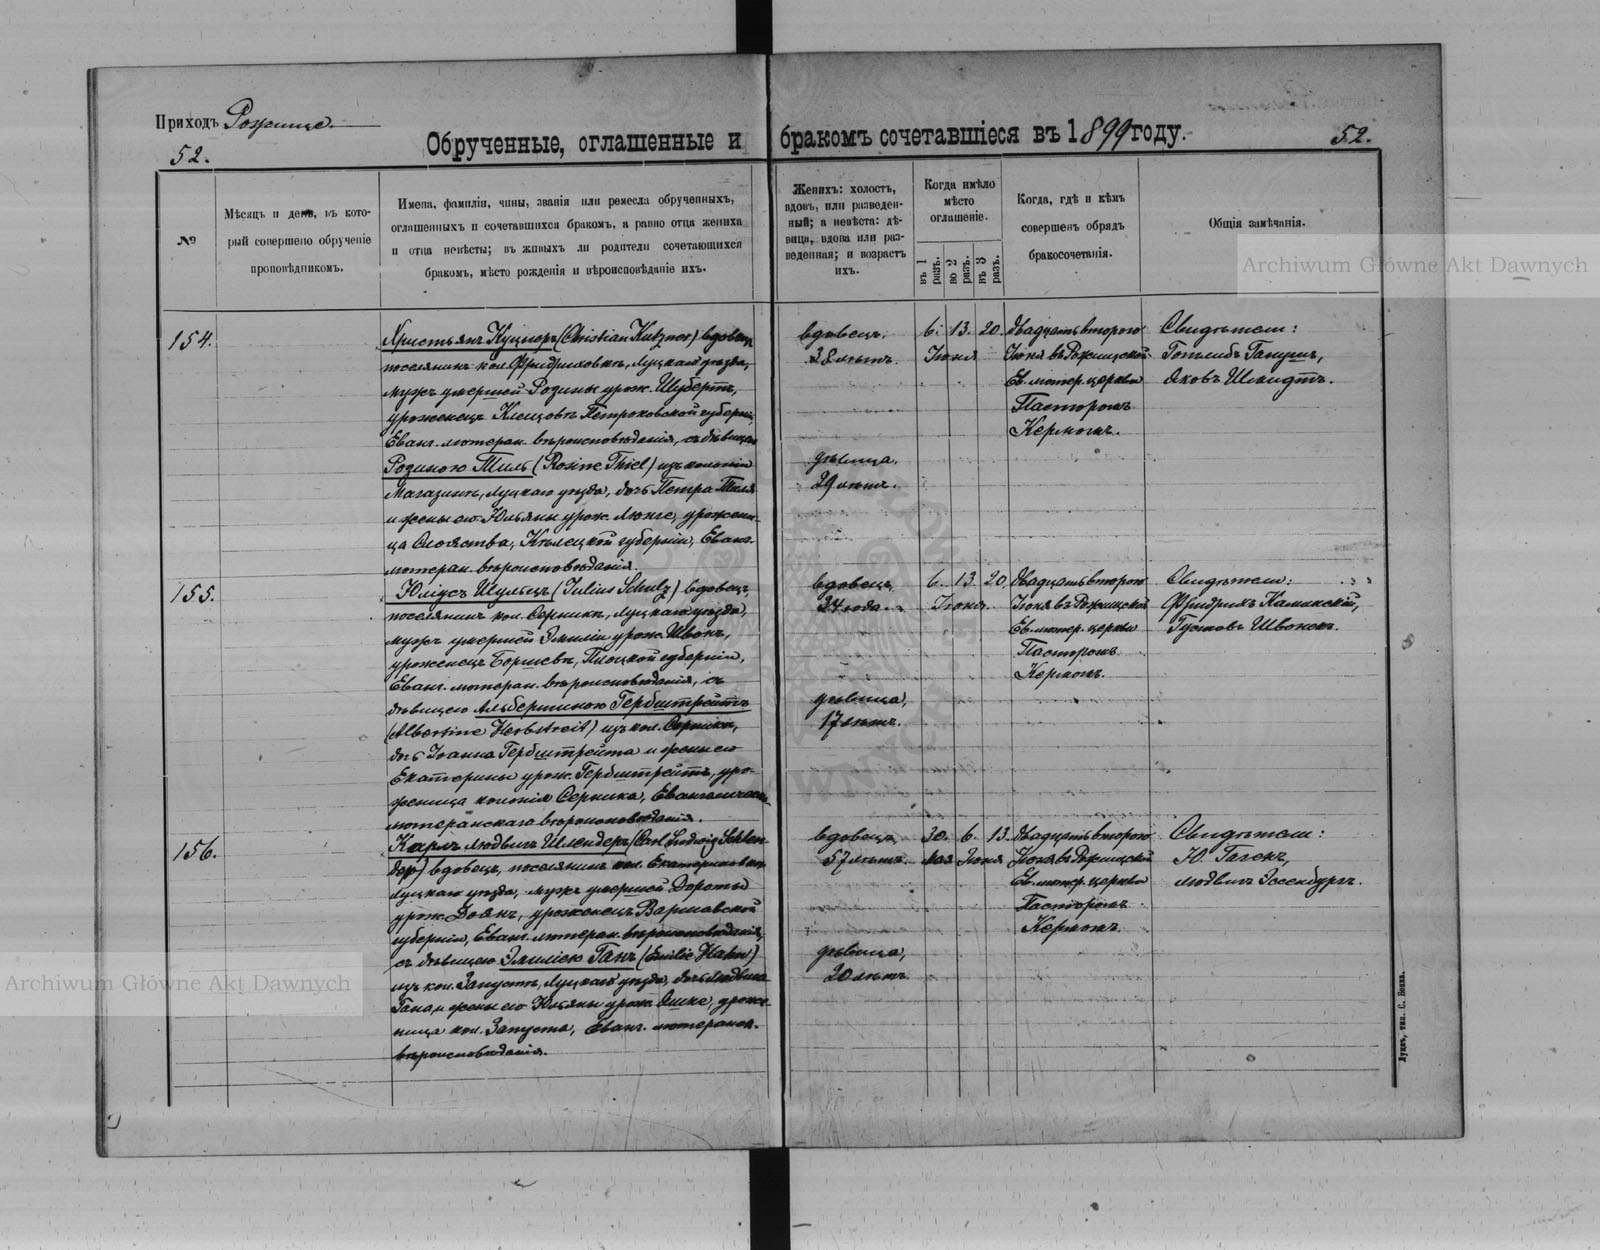 Приходъ Рожище.
52.
Обрученные, оглашенные и бракомъ сочетавшіеся въ 1899 году.
52.
№
Мѣсяцъ и день, въ кото-
рый совершено обрученіе
проповѣдникомъ.
Имена, фамиліи, чины, званія или ремесла обрученныхъ,
оглашенныхъ и сочетавшихся бракомъ, а равно отца жениха
и отца невѣсты; въ живыхъ ли родители сочетающихся
бракомъ, мѣсто рожденія и вѣроисповѣданіе ихъ.
Женихъ: холостъ,
вдовъ, или разведен-
ный; а невѣста: дѣ-
вица, вдова или раз-
веденная; и возрастъ
ихъ.
Когда имѣло
мѣсто
оглашеніе.
въ 1 разъ.
во 2 разъ.
въ 3 разъ.
Когда, гдѣ и кѣмъ
совершенъ обрядъ
бракосочетанія.
Общія замѣчанія.
154.
Христьянъ Куцнеръ (Christian Kutzner) вдовецъ
поселянинъ кол. Фридриховки, Луцкаго уѣзда,
мужъ умершей Розины урож. Шубертъ,
уроженецъ Клещовъ Петроковской губерніи,
Еванг. лютеран. вѣроисповѣданія, съ дѣвицею
Розиною Тиль (Rosine Thiel) изъ колоніи
Магазинъ, Луцкаго уѣзда, дочь Петра Тиля
и жены его Юльяны урож. Люнге, урожени-
ца, Кѣлецкой губерніи, Еванг.
лютеран. вѣроисповѣданія.
вдовецъ.
38 лѣтъ.
дѣвица.
29 лѣтъ.
6. 13. 20
Іюня
Двадцать второго
Іюня въ Рожищской
Ев. лютер. церкви
Пасторомъ
Кермомъ.
Свидѣтели:
Готлибъ Ганушъ,
Яковъ Шмидтъ.
155.
Юліусъ Шульцъ (Julius Schulz) вдовецъ,
поселянинъ кол. Серники, Луцкаго уѣзда,
мужъ умершей Эмиліи урож. Швонъ,
уроженецъ, Плоцкой губерніи,
Еванг. лютеран. вѣроисповѣданія, съ
дѣвицею Альбертиною Гербштрейтъ
(Albertine Herbstreit) изъ кол. Серники,
дочь Іоанна Гербштрейта и жены его
Екатерины урож. Гербштрейтъ, уро-
женица колоніи Серника, Евангелическо-
лютеранскаго вѣроисповѣданія.
вдовецъ,
34 года.
дѣвица,
17 лѣтъ.
6. 13 20.
Іюня.
Двадцать второго
Іюня въ Рожищской
Ев. лютер. церкви
Пасторомъ
Кермомъ.
Свидѣтели:
Фридрихъ Каминскій,
Густавъ Швонекъ.
156.
Карлъ Людвигъ Шлендеръ (Carl Ludwig Schlen-
der) вдовецъ, поселянинъ кол.
Луцкаго уѣзда, мужъ умершей Дороты
урож., уроженецъ Варшавской
губерніи, Еванг. лютеран. вѣроисповѣданія,
съ дѣвицею Эмиліею Ганъ (Emilie Hahn)
изъ кол. Запустъ, Луцкаго уѣзда, дочь Людвига
Гана и жены его Юльяны урож. Яшке, уроже-
ница кол. Запуста, Еванг. лютеранск.
вѣроисповѣданія.
вдовецъ
57 лѣтъ.
дѣвица,
20 лѣтъ.
30. 6. 13.
Мая Іюня
Двадцать второго
Іюня въ Рожищской
Ев. лютер. церкви
Пасторомъ
Кермомъ.
Свидѣтели:
Ю. Гагенъ,
Людвигъ Эссенбургъ.
Луцкъ, тип. С. Бонка.
Archiwum Główne Akt Dawnych
Archiwum Główne Akt Dawnych